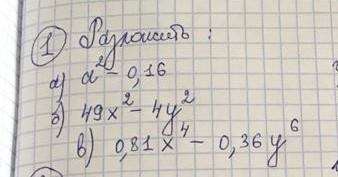 ① Разложить :
а) a² – 0,16
б) 49x² – 4y²
в) 0,81x⁴ – 0,36y⁶